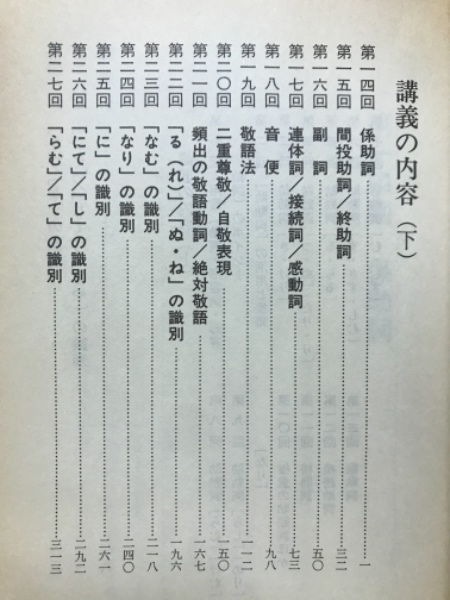 講義の内容（下）
第一四回 係助詞……一
第一五回 間投助詞／終助詞……三二
第一六回 副詞……五〇
第一七回 連体詞／接続詞／感動詞……七三
第一八回 音便……九八
第一九回 敬語法……一一二
第二〇回 二重尊敬／自敬表現……一五〇
第二一回 頻出の敬語動詞／絶対敬語……一六七
第二二回 「る（れ）」／「ぬ・ね」の識別……一九六
第二三回 「なむ」の識別……二一八
第二四回 「なり」の識別……二四〇
第二五回 「に」の識別……二六一
第二六回 「にて」／「し」の識別……二九二
第二七回 「らむ」／「て」の識別……三一三